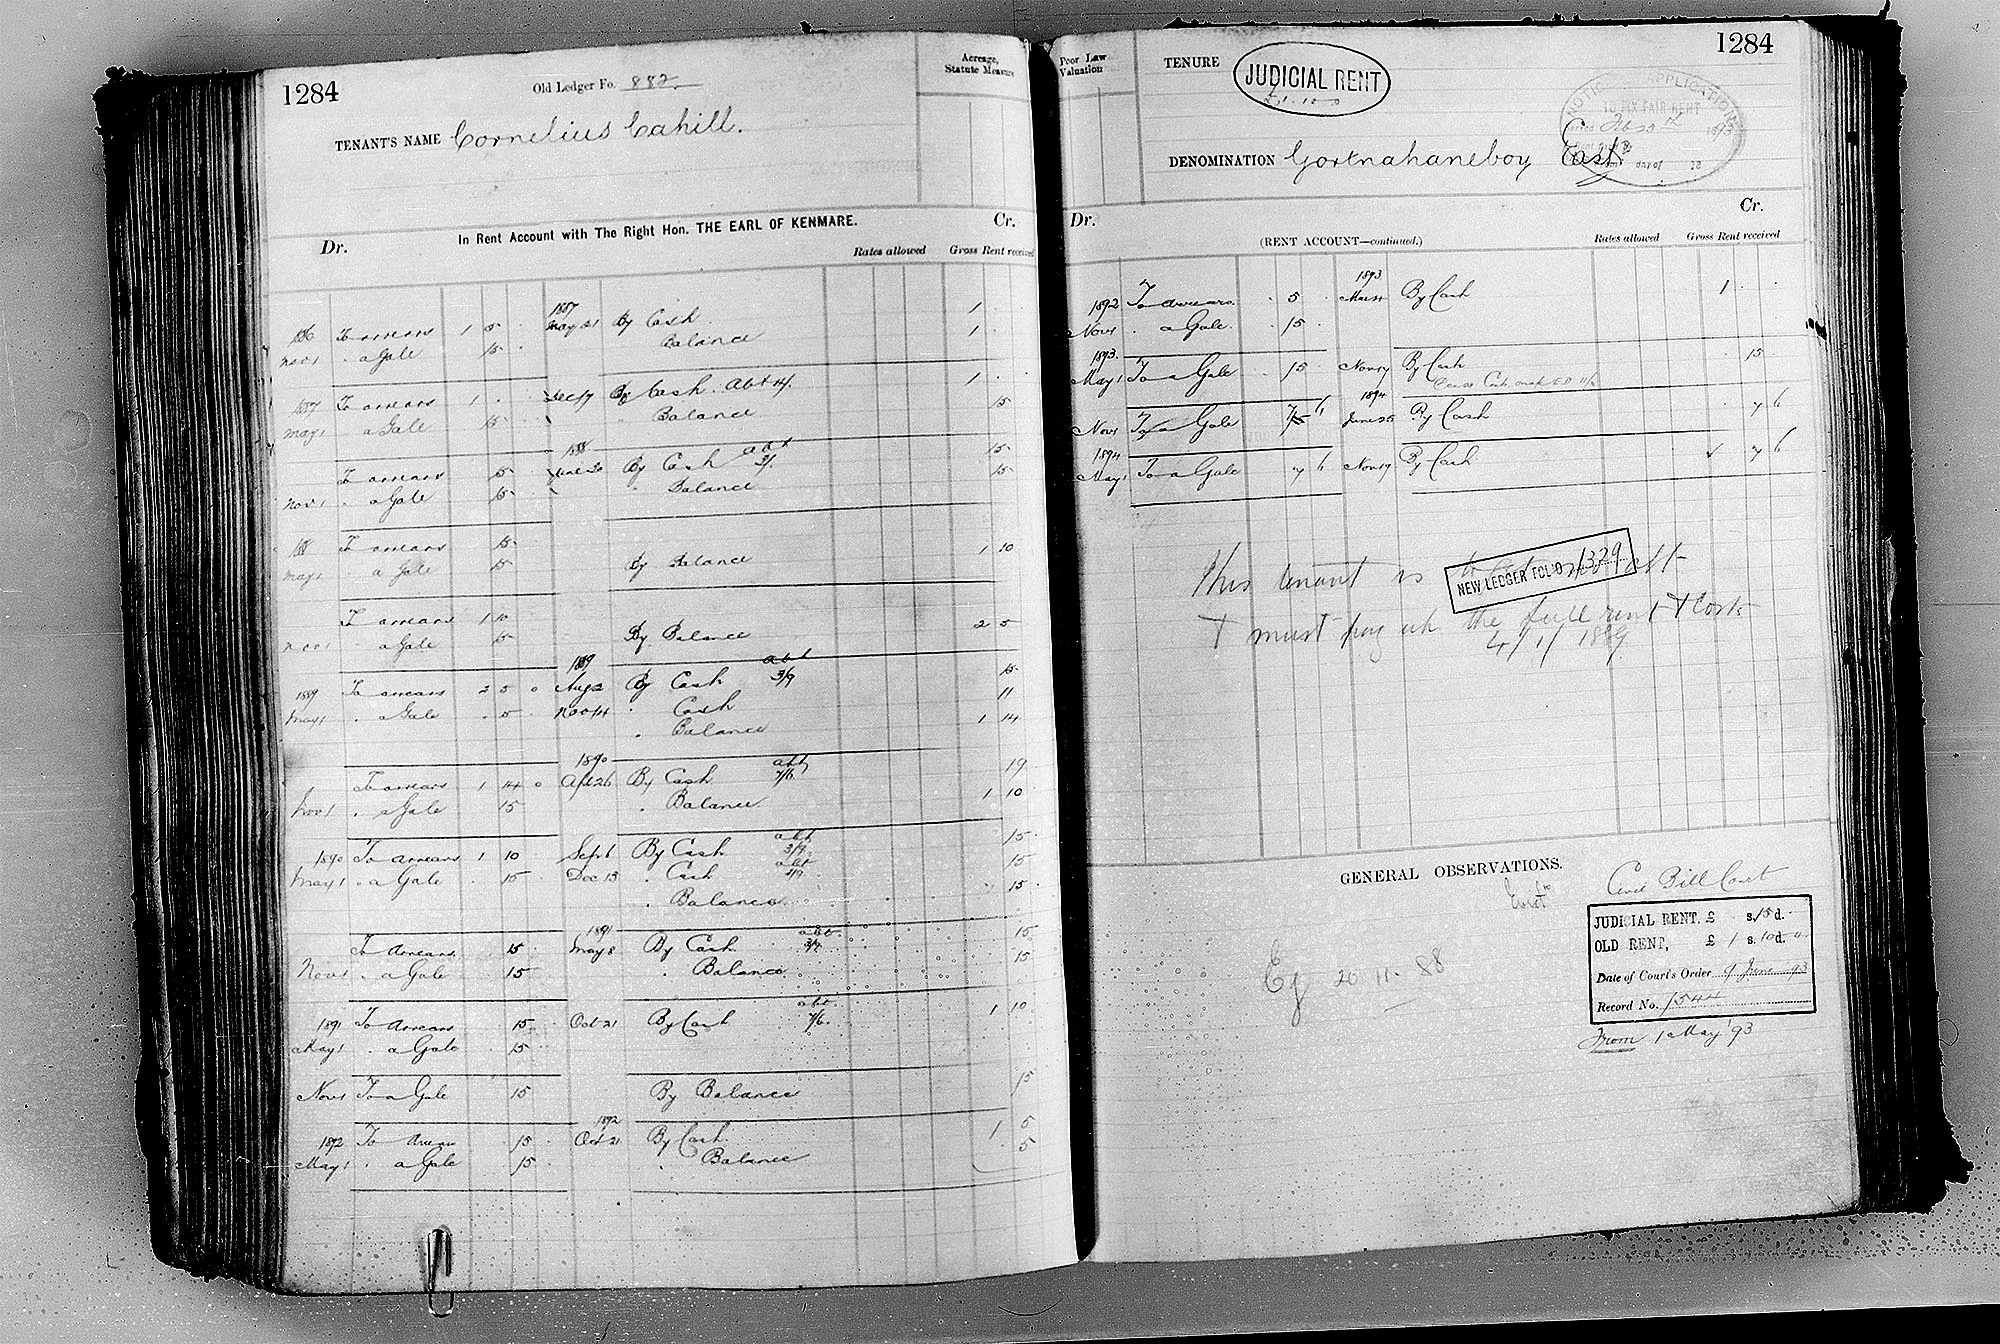 1284
Old Ledger Fo. 882.
Acreage,
Statute Measure
TENANT'S NAME Cornelius Cahill.
In Rent Account with The Right Hon. THE EARL OF KENMARE.
Dr. Cr.
Rates allowed Gross Rent received
1887
1886 To arrears 1 5 May 21 By Cash 1
Nov 1 " a Gale 15 Balance 1
1887 To arrears 1 Dec 17 By Cash Abt 4/. 1
May 1 " a Gale 15 " Balance 15
1888
To arrears 15 June 20 By Cash abt 15
Nov 1 " a Gale 15 " Balance 15
1888 To arrears 15
May 1 " a Gale 15 By Balance 1 10
To arrears 1 10
Nov 1 " a Gale 15 By Balance 2 5
1889
1889 To arrears 2 5 0 Aug 2 By Cash abt 3/9 15
May 1 " a Gale 5 Nov 14 " Cash 11
" Balance 1 14
1890
To arrears 1 14 0 Apl 26 By Cash abt 7/6 19
Nov 1 " a Gale 15 " Balance 1 10
1890 To arrears 1 10 Sept 6 By Cash abt 3/9 15
May 1 " a Gale 15 Dec 13 " Cash abt 15
" Balance 15
1891
To Arrears 15 May 8 By Cash abt 15
Nov 1 " a Gale 15 " Balance 15
1891 To Arrears 15 Oct 21 By Cash abt 7/6 1 10
May 1 " a Gale 15
Nov 1 To a Gale 15 By Balance 15
1892
1892 To Arrears 15 Oct 21 By Cash 1 5
May 1 " a Gale 15 " Balance 5
1284
Poor Law
Valuation
TENURE JUDICIAL RENT
£1-10-0
NOTICE APPLICATION
TO FIX FAIR RENT
Served Feb 1893
day of 18
DENOMINATION Gortnahaneboy East
Dr. Cr.
(RENT ACCOUNT—continued.)
Rates allowed Gross Rent received
1893
1892 To arrears 5 By Cash 1
Nov 1 " a Gale 15
1893
May 1 To a Gale 15 Nov 17 By Cash 15
1894
Nov 1 To a Gale 7 6 June 25 By Cash 7 6
1894
May 1 To a Gale 7 6 Nov 17 By Cash 7 6
This tenant is
NEW LEDGER FOLIO 1329
& must pay up the full rent & Costs
4/1/1889
GENERAL OBSERVATIONS.
Civil Bill Court
JUDICIAL RENT. £ s. 15 d. -
OLD RENT, £ 1 s. 10 d. 0
Date of Court's Order 9 June 93
Record No. 1544
From 1 May '93
Ej 20 11 88